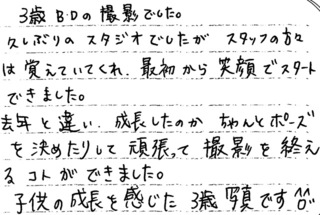 3歳 B・Dの撮影でした。
久しぶりのスタジオでしたが スタッフの方々
は覚えていてくれ、最初から笑顔でスタート
できました。
去年と違い、成長したのか ちゃんとポーズ
を決めたりして 頑張って 撮影を終え
る コトができました。
子供の成長を感じた 3歳写真です^^